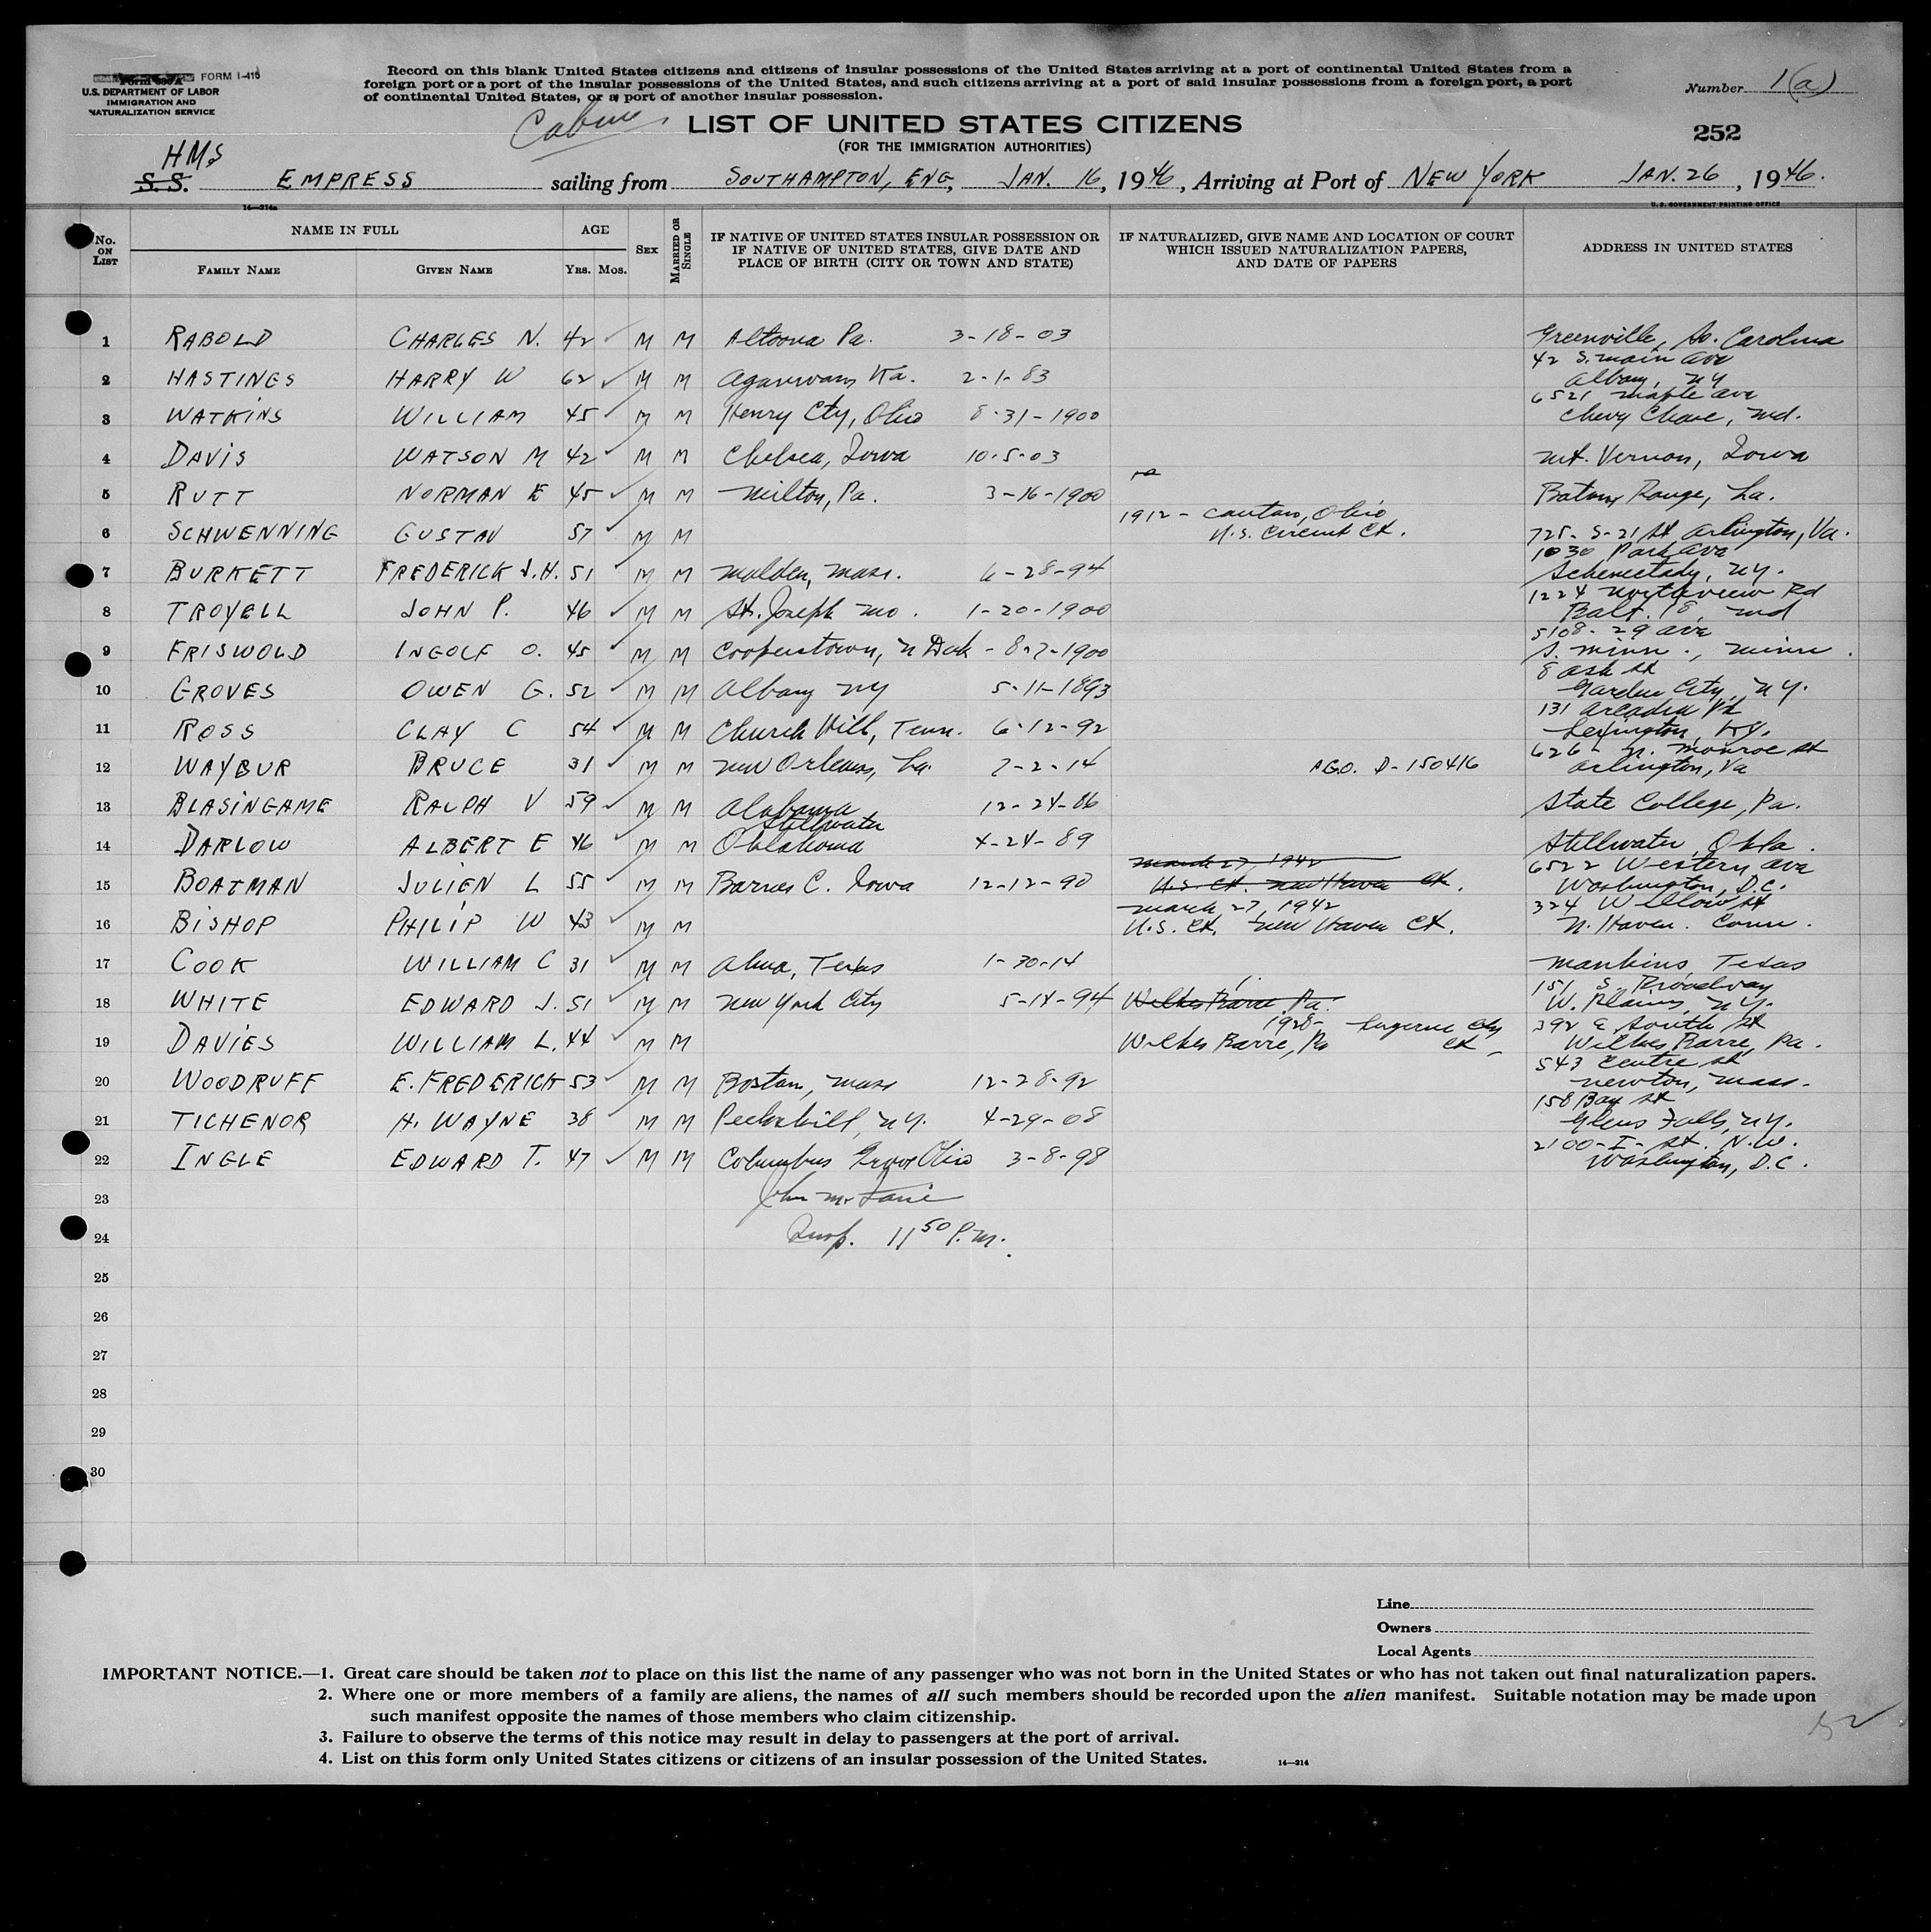 FORM I-415
U.S. DEPARTMENT OF LABOR
IMMIGRATION AND
NATURALIZATION SERVICE
Record on this blank United States citizens and citizens of insular possessions of the United States arriving at a port of continental United States from a
foreign port or a port of the insular possessions of the United States, and such citizens arriving at a port of said insular possessions from a foreign port, a port
of continental United States, or a port of another insular possession.
Number 1(a)
Cabin
LIST OF UNITED STATES CITIZENS
(FOR THE IMMIGRATION AUTHORITIES)
252
HMS
S. S. EMPRESS sailing from SOUTHAMPTON, ENG, JAN. 16, 1946, Arriving at Port of NEW YORK JAN. 26, 1946.
16—214a
U. S. GOVERNMENT PRINTING OFFICE
No. ON LIST
NAME IN FULL
FAMILY NAME GIVEN NAME
AGE
YRS. MOS.
SEX
MARRIED OR SINGLE
IF NATIVE OF UNITED STATES INSULAR POSSESSION OR
IF NATIVE OF UNITED STATES, GIVE DATE AND
PLACE OF BIRTH (CITY OR TOWN AND STATE)
IF NATURALIZED, GIVE NAME AND LOCATION OF COURT
WHICH ISSUED NATURALIZATION PAPERS,
AND DATE OF PAPERS
ADDRESS IN UNITED STATES
1 RABOLD CHARLES N. 42 M M Altoona Pa. 3-18-03 Greenville, So. Carolina
42 S. Main Ave
2 HASTINGS HARRY W 62 M M 2-1-83 Albany, NY
6521 Maple Ave
3 WATKINS WILLIAM 45 M M Henry Cty, Ohio 8-31-1900 Chevy Chase, Md.
4 DAVIS WATSON M 42 M M Chelsea, Iowa 10-5-03 Mt. Vernon, Iowa
5 RUTT NORMAN E 45 M M Milton, Pa. 3-16-1900 Baton Rouge, La.
1912 - Canton, Ohio
6 SCHWENNING GUSTAV 57 M M U.S. Circuit Ct. 725-S-21 St Arlington, Va.
1030 Park Ave
7 BURKETT FREDERICK J.H. 51 M M Malden, Mass. 6-28-94 Schenectady, NY.
1224 Northview Rd
8 TROYELL JOHN P. 46 M M St. Joseph Mo. 1-20-1900 Balt. 18, Md
5108-29 Ave
9 FRISWOLD INGOLF O. 45 M M Cooperstown, N Dak - 8-7-1900 S. Minn., Minn.
8 Ash St
10 GROVES OWEN G. 52 M M Albany NY 5-11-1893 Garden City, NY.
131 Arcadia Pk
11 ROSS CLAY C 54 M M Church Hill, Tenn. 6-12-92 Lexington, Ky.
626 - N. Monroe St
12 WAYBUR BRUCE 31 M M New Orleans, La. 7-2-14 AGO. D-150416 Arlington, Va
13 BLASINGAME RALPH V 59 M M Alabama 12-24-86 State College, Pa.
Stillwater
14 DARLOW ALBERT E 46 M M Oklahoma 4-24-89 Stillwater, Okla.
March 27, 1942 6522 Western Ave
15 BOATMAN JULIEN L 55 M M Barnes C. Iowa 12-12-90 U.S. Ct. New Haven Ct. Washington, D.C.
March 27, 1942 324 Willow St
16 BISHOP PHILIP W 43 M M U.S. Ct. New Haven Ct. N. Haven. Conn.
17 COOK WILLIAM C 31 M M Alma, Texas 1-30-14 Mankins, Texas
151 S. Broadway
18 WHITE EDWARD J. 51 M M New York City 5-14-94 Wilkes Barre, Pa. W. Plains, NY.
1928- Luzerne Cty 392 E South St
19 DAVIES WILLIAM L. 44 M M Wilkes Barre, Pa Ct - Wilkes Barre, Pa.
543 Centre St
20 WOODRUFF E. FREDERICK 53 M M Boston, Mass 12-28-92 Newton, Mass.
158 Bay St
21 TICHENOR H. WAYNE 38 M M Peekskill, NY. 4-29-08 Glens Falls, NY.
2100-I-St. N.W.
22 INGLE EDWARD T. 47 M M Columbus Grove Ohio 3-8-98 Washington, D.C.
23 John
24 Insp. 11 50 P.M.
25
26
27
28
29
30
Line
Owners
Local Agents
IMPORTANT NOTICE.—1. Great care should be taken not to place on this list the name of any passenger who was not born in the United States or who has not taken out final naturalization papers.
2. Where one or more members of a family are aliens, the names of all such members should be recorded upon the alien manifest. Suitable notation may be made upon
such manifest opposite the names of those members who claim citizenship.
3. Failure to observe the terms of this notice may result in delay to passengers at the port of arrival.
4. List on this form only United States citizens or citizens of an insular possession of the United States.
14—214